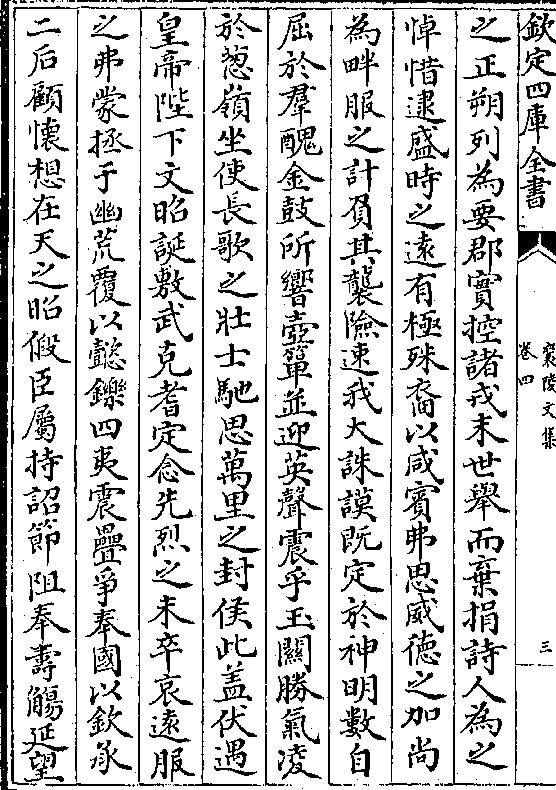 欽定四庫全書
襄陵文集
卷四
三
之正朔列為要郡實控諸戎末世舉而棄捐詩人為之
悼惜逮盛時之遠有極殊裔以咸賓弗思威德之加尚
為畔服之計負其襲險速我大誅謨既定於神明數自
屈於羣醜金鼓所響壺簞並迎英聲震乎玉關勝氣凌
於葱嶺坐使長歌之壯士馳思萬里之封侯此盖伏遇
皇帝陛下文昭誕敷武克耆定念先烈之未卒哀遠服
之弗蒙拯于幽荒覆以懿鑠四夷震疊爭奉國以欽承
二后顧懷想在天之昭假臣屬持詔節阻奉壽觴延望